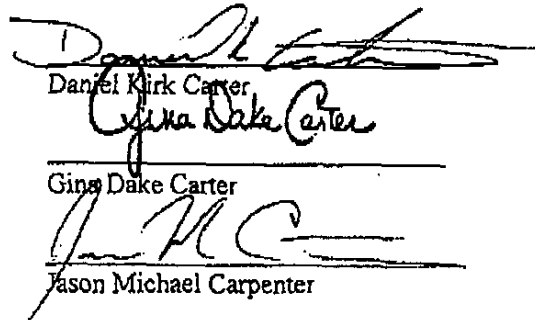 Daniel K Carter
Daniel Kirk Carter
Gina Dake Carter
Gina Dake Carter
Jason M C
Jason Michael Carpenter